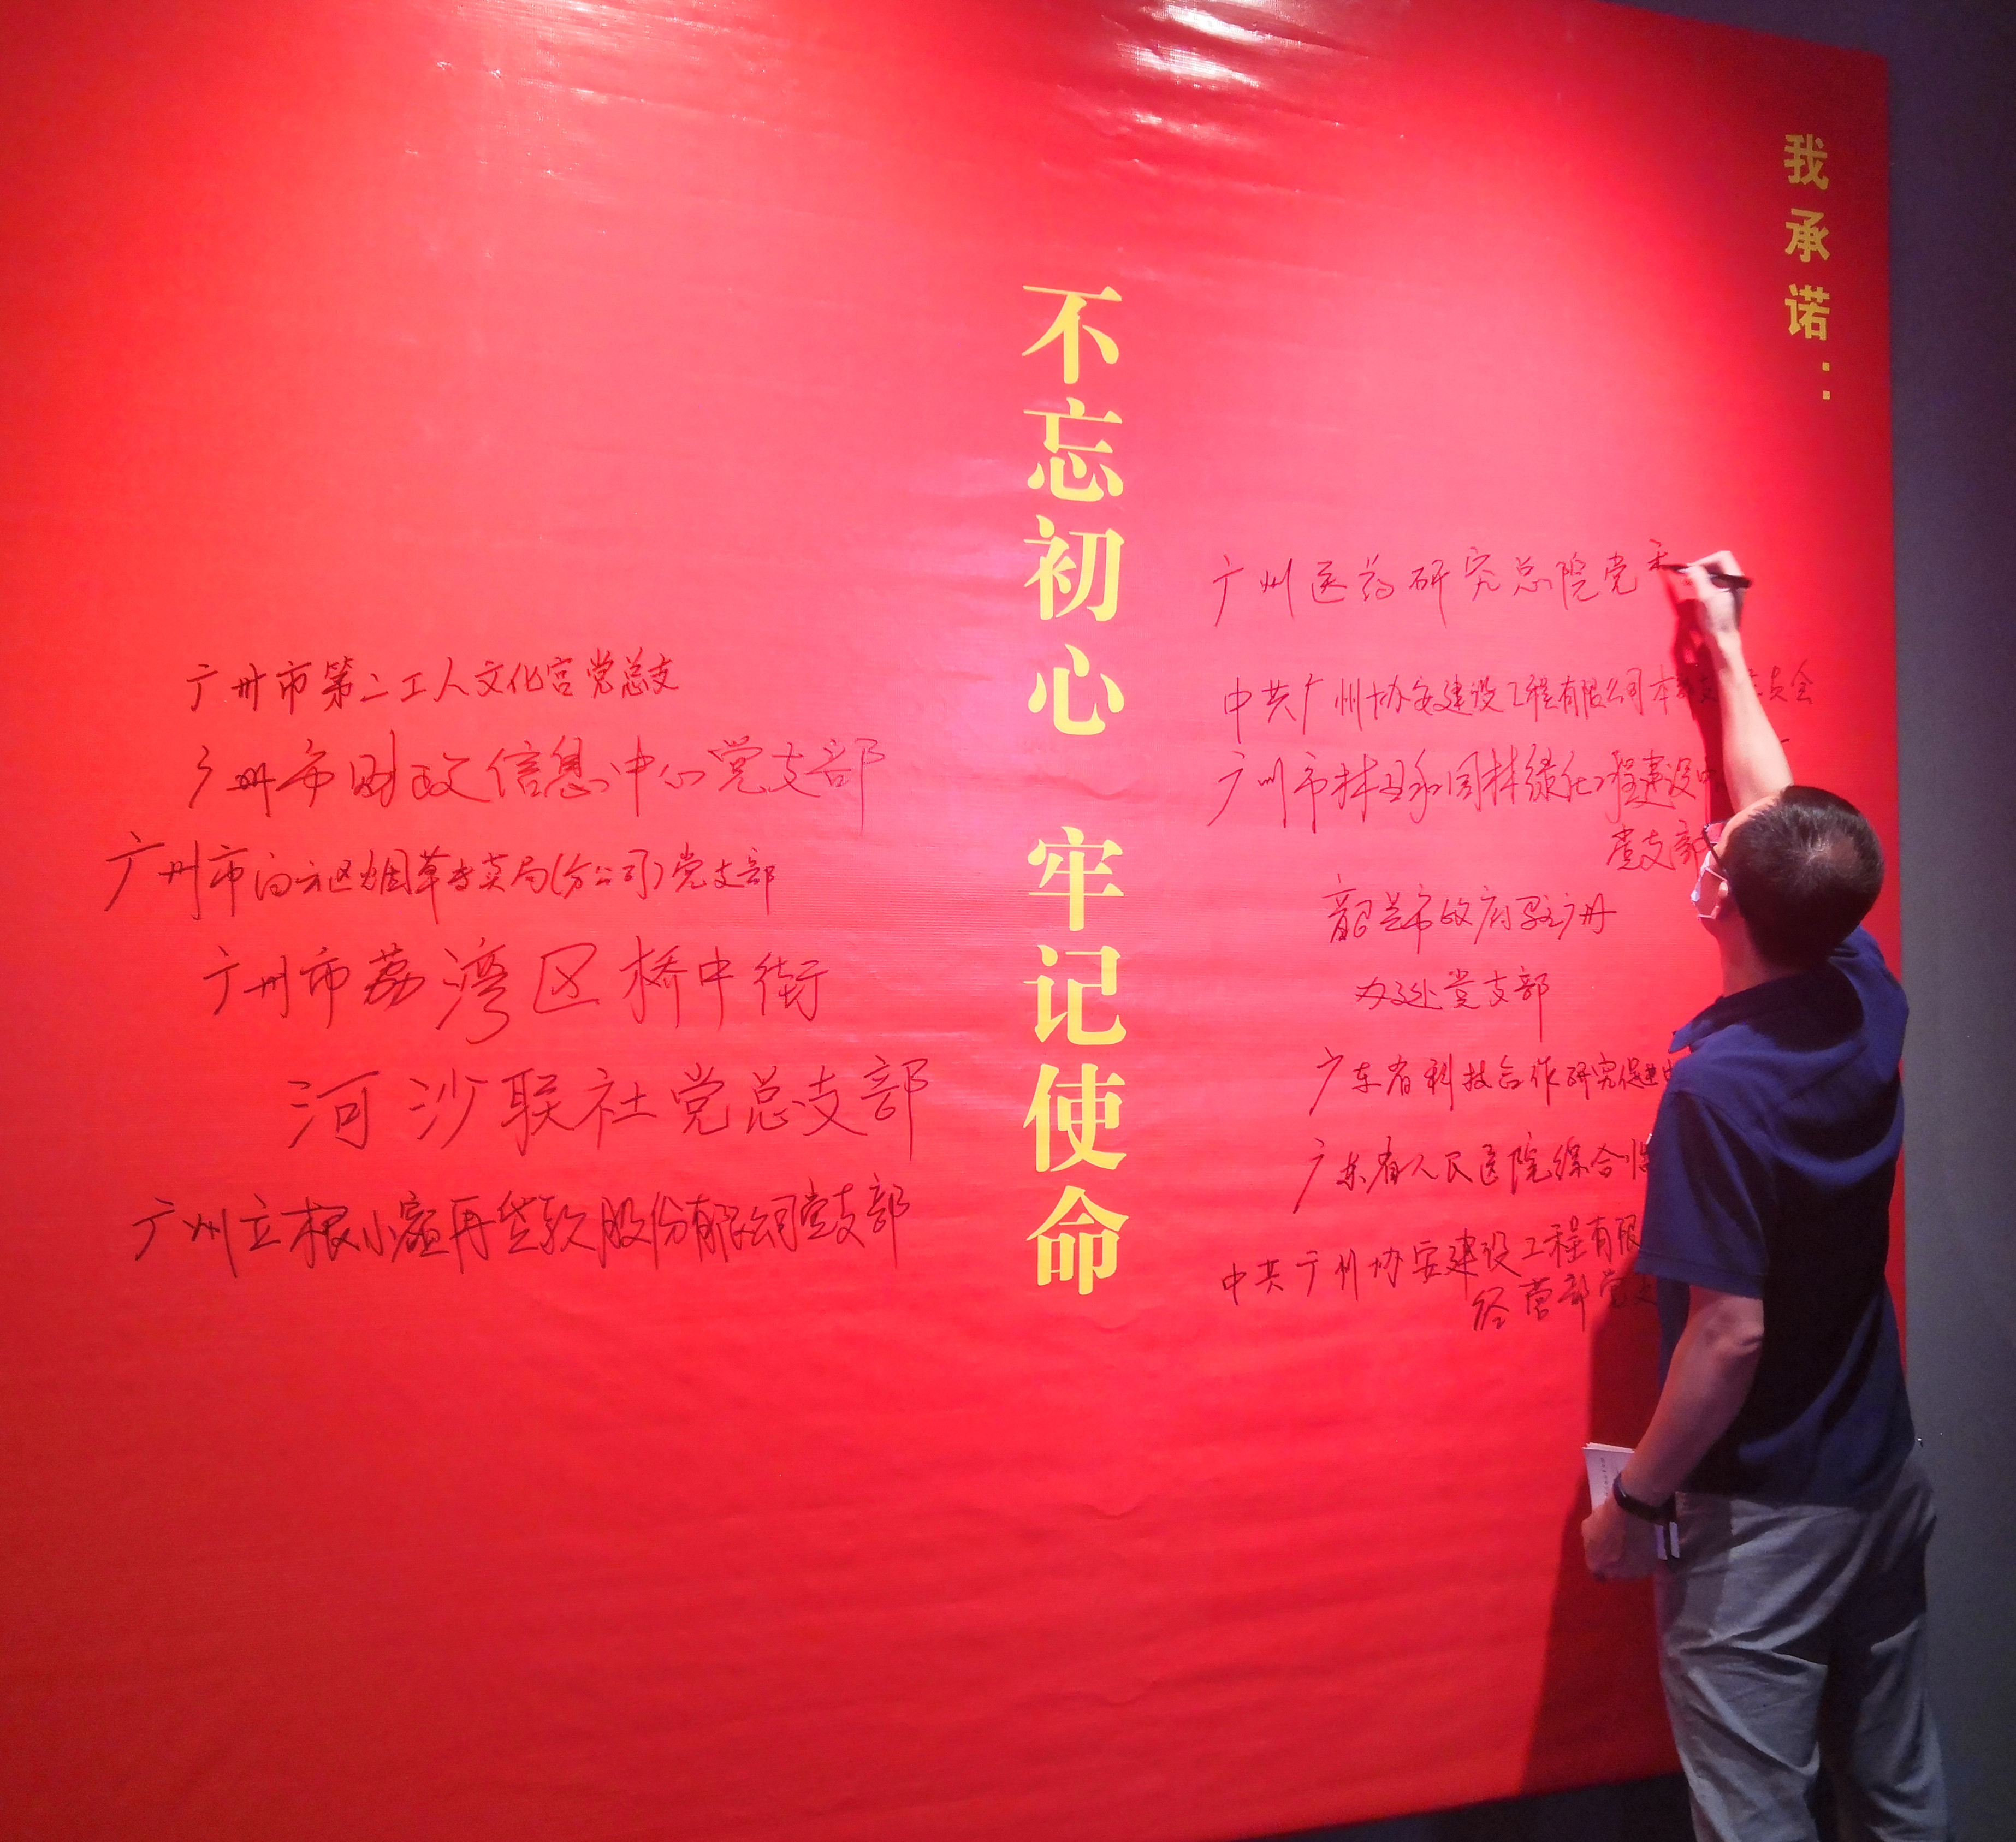 我承诺：
不忘初心 牢记使命
广州医药研究总院党
中共广州协安建设工程有限公司本 支 委员会
广州市林业和园林绿化工程建设
党支部
韶关市政府驻广州
办事处党支部
广东省科技合作研究促进中
广东省人民医院综合
中共广州协安建设工程有限
经营部党支
广州市第二工人文化宫党总支
广州市财政信息中心党支部
广州市白云区烟草专卖局(分公司)党支部
广州市荔湾区桥中街
河沙联社党总支部
广州立根小额再贷款股份有限公司党支部